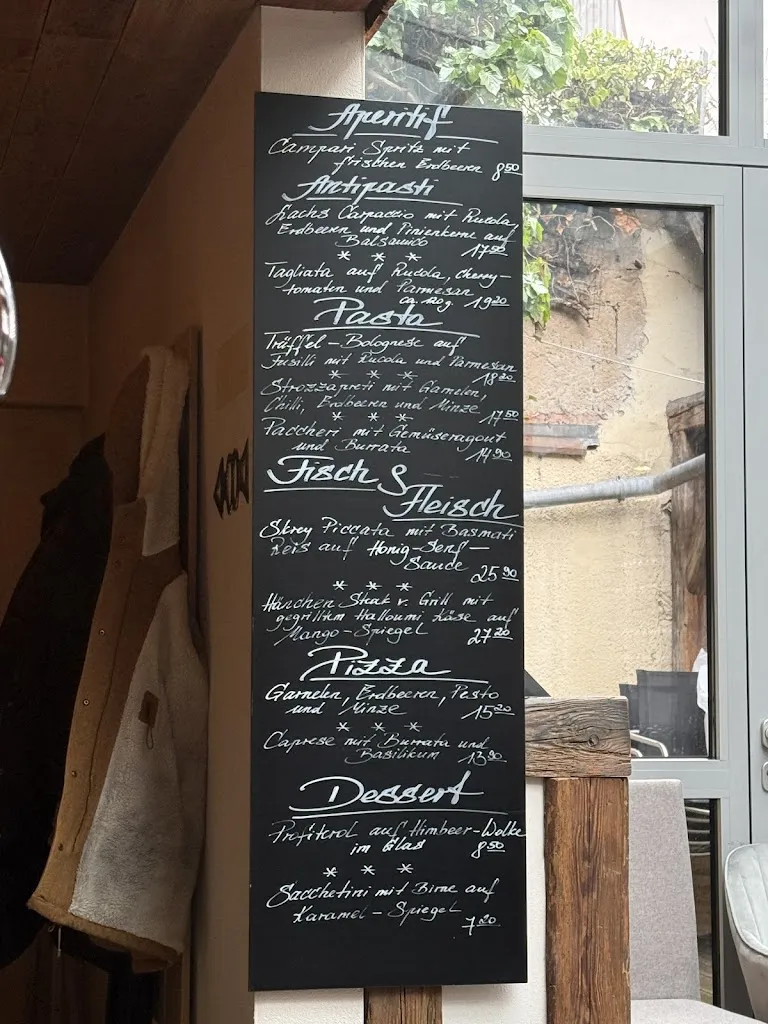 Aperitif
Campari Spritz mit
frischen Erdbeeren 8⁵⁰
Antipasti
Lachs Carpaccio mit Rucola,
Erdbeeren und Pinienkerne auf
Balsamico 17⁵⁰
* * *
Tagliata auf Rucola, Cherry-
tomaten und Parmesan
ca. 120g. 19²⁰
Pasta
Trüffel-Bolognese auf
Fusilli mit Rucola und Parmesan
* * * 18²⁰
Strozzapreti mit Garnelen,
Chilli, Erdbeeren und Minze
* * * 17⁵⁰
Paccheri mit Gemüseragout
und Burrata 14⁹⁰
Fisch &
Fleisch
Skrey Piccata mit Basmati
Reis auf Honig-Senf-
Sauce 25⁹⁰
* * *
Hänchen Steak v. Grill mit
gegrilltem Halloumi Käse auf
Mango-Spiegel 27²⁰
Pizza
Garnelen, Erdbeeren, Pesto
und Minze 15²⁰
* * *
Caprese mit Burrata und
Basilikum 13⁹⁰
Dessert
Profiterol auf Himbeer-Wolke
im Glas 8⁵⁰
* * *
Sacchetini mit Birne auf
Karamel-Spiegel
7²⁰